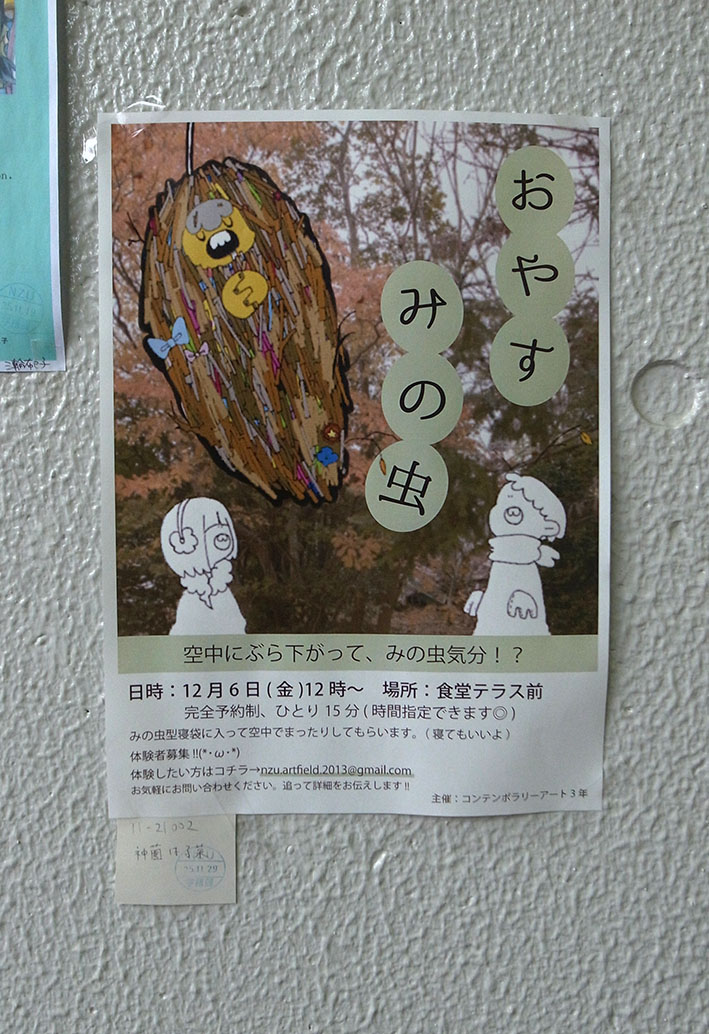 おやす
みの虫
空中にぶら下がって、みの虫気分！？
日時：12月6日(金)12時〜　場所：食堂テラス前
完全予約制、ひとり15分(時間指定できます◎)
みの虫型寝袋に入って空中でまったりしてもらいます。(寝てもいいよ)
体験者募集!!(*･ω･*)
体験したい方はコチラ→nzu.artfield.2013@gmail.com
お気軽にお問い合わせください。追って詳細をお伝えします!!
主催：コンテンポラリーアート3年
11-21002